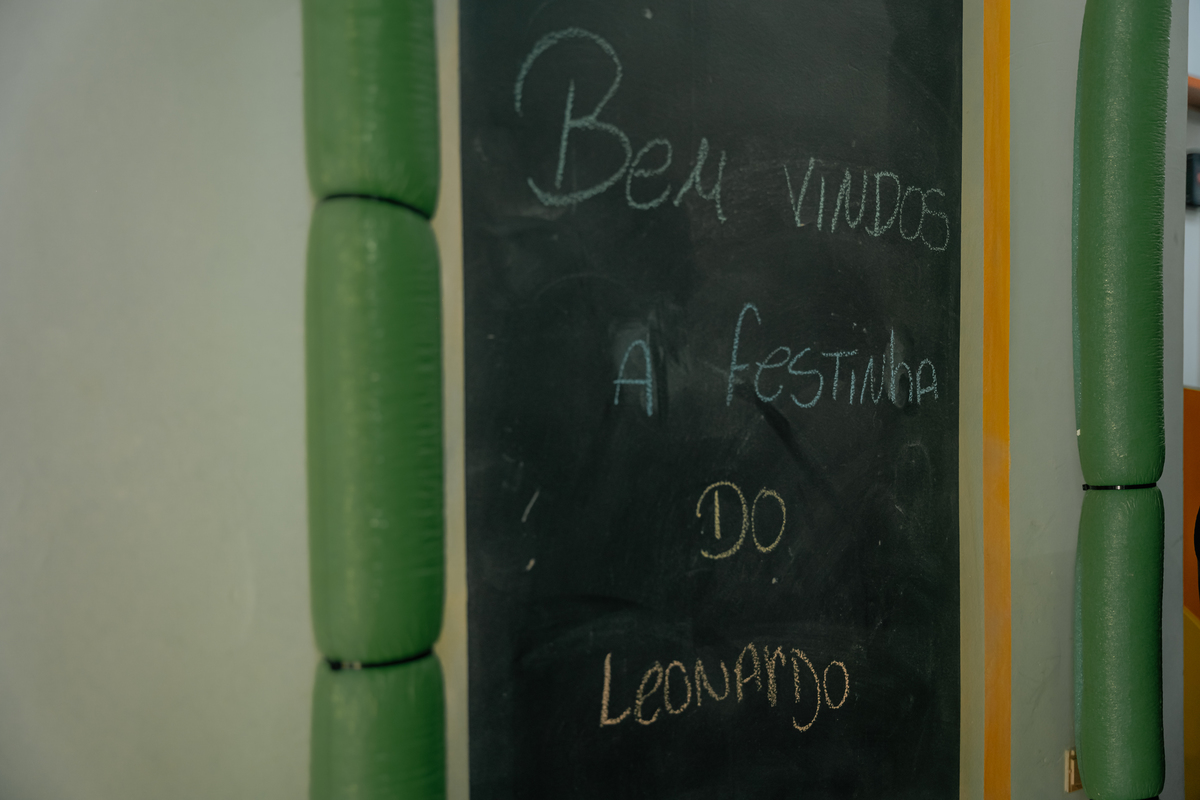 Bem VINDOS
A festinha
DO
Leonardo